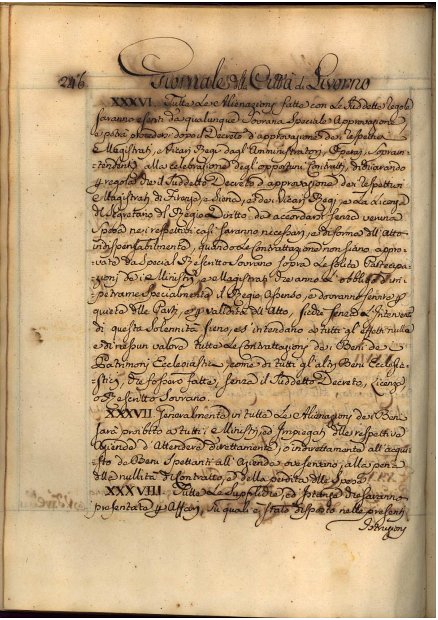 246 Giornale della Città di Livorno
XXXVI. Tutte Le Alienazioni fatte con Le Suddette Regole
saranno esenti da qualunque Sovrana Speciale Approvazione
e potrà procedersi dopo il Decreto d'approvazione de i respettivi
Magistrati, e Vicari Regi dagli Amministratori, Operai, Soprain
tendenti alla celebrazione degl'opportuni Contratti, dichiarando
p regola che il Suddetto Decreto d'approvazione de i respettivi
Magistrati di Firenze, e Siena, e de i Vicari Regi, e La Licenza
del Segretario del Regio Diritto da accordarsi senza veruna
Spesa ne i respettivi casi saranno necessari, e di forma all'Atto
indispensabilmente, quando Le Contrattazioni non siano appro
vate da Special Rescritto Sovrano sopra Le Solite Partecipa
zioni de i Ministri, e Magistrati che anno L'obbligo
impetrarne Specialmente il Regio Assenso, e dovranno servire p
quiete delle Parti, e p validità dell'Atto, sicchè senza L'Intervento
di questa Solennità sieno, e s'intendano a tutti gl'effetti nulle
e di nessun valore tutte Le Contrattazioni de i Beni de
Patrimoni Ecclesiastici, come di tutti gl'altri Beni Ecclesia
stici, che fossero fatte senza il Suddetto Decreto, Licenza,
o Rescritto Sovrano.
XXXVII Generalmente in tutte Le Alienazioni de i Beni
sarà proibito a tutti i Ministri, ed Impiegati delle respettive
Aziende d'Attendere direttamente, o indirettamente all'acqui
sto de Beni Spettanti all'Azienda ove servono, alla pena
della nullità del contratto, e della perdita della Spesa
XXXVIII. Tutte Le Suppliche, ed Istanze che saranno
presentate p Affari, su quali è stato disposto nelle presenti
Istruzioni